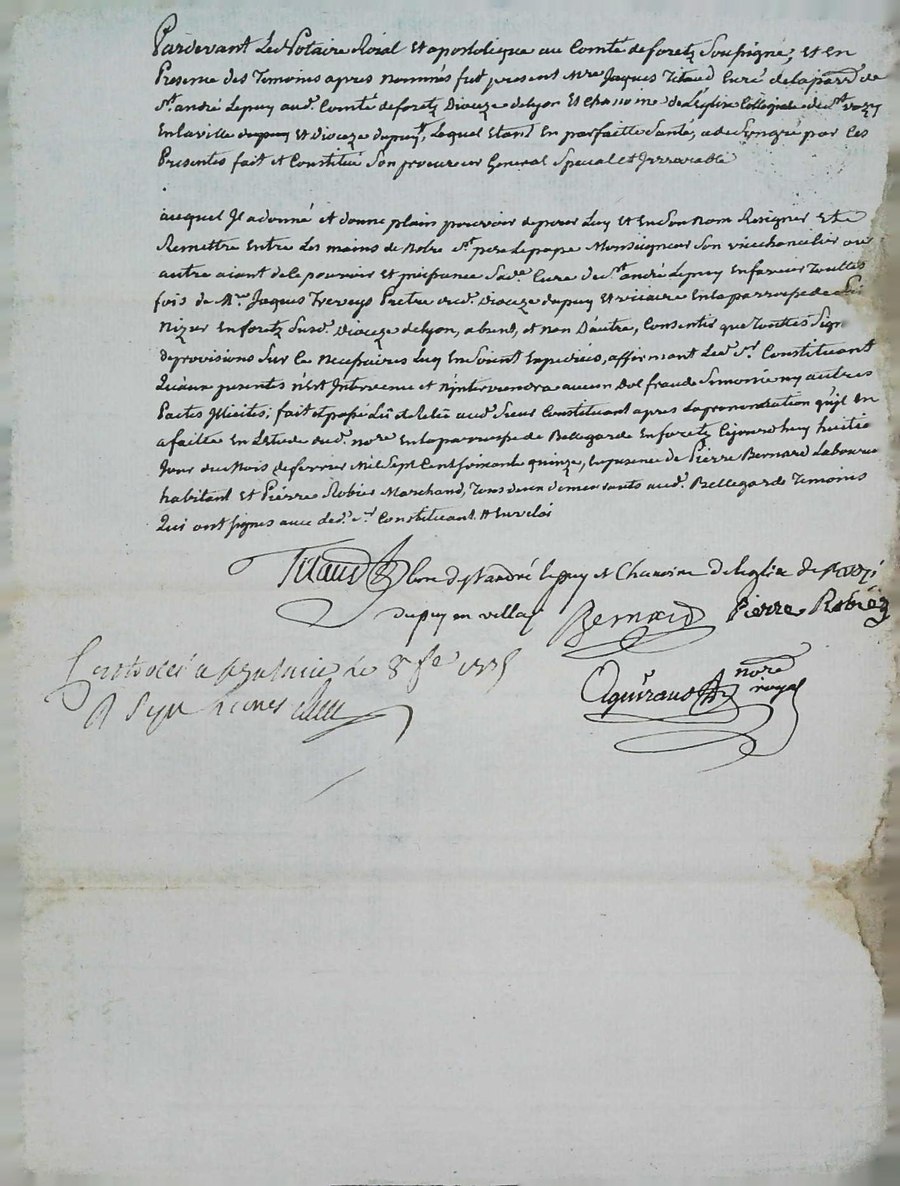 Pardevant Le Notaire Roial Et apostolique au Comté de foretz Soussigné, Et En
Presence des Temoins apres nommés fut present Mre Jaques Titaud Curé de la parsse de
st. andré Le puy aud. Comté de foretz Dioceze de Lyon Et chanoine de L'église Collegiale de st. vozy
En la ville du puy Et Dioceze du puy, Lequel Etant En parfaitte Santé, a de Son gré par Ces
Presentes fait et Constitué Son procureur General Special et Irrevocable
auquel Il a donné et donne plain pouvoir de pour Luy et En Son Nom Resigner Et
Remettre Entre Les mains de Notre st. pere Le pape Monseigneur Son vicechancelier ou
autre aiant de le pouvoir Et puissance Sade. Cure de st. andré Le puy En faveur Touttes
fois de Mre. Jaques Treveys Pretre dud. Dioceze du puy et vicaire En la parroisse de
Nizier En foretz Susd. Dioceze de Lyon, absent, et Non D'autre, Consentir que Touttes Sign
de provisions Sur Ce Necessaires Luy En Soient Expediées, affirmant Led. sr. Constituant
Qu'aux presentes n'est Intervenu et n'interviendra aucun Dol fraude Simonie ny autres
Pactes Illicites; fait et passé Lû et Relû aud. Sieur Constituant apres La prononciation qu'il En
a faitte En L'etude dud. nore En la parroisse de Bellegarde En foretz Cejourd'huy huitie
Jour du Mois de fevrier Mil Sept Cent soixante quinze, En presence de Pierre Bernard Laboureur
habitant et Pierre Robier Marchand, Tous deux demeurants aud. Bellegarde Temoins
Qui ont signés avec led. sr. Constituant
Titaud Curé de st andré le puy et Chanoine de l'eglise de st vozi
du puy en vellay Bernard Pierre Robier
nore
royal
le 8 fe 1775